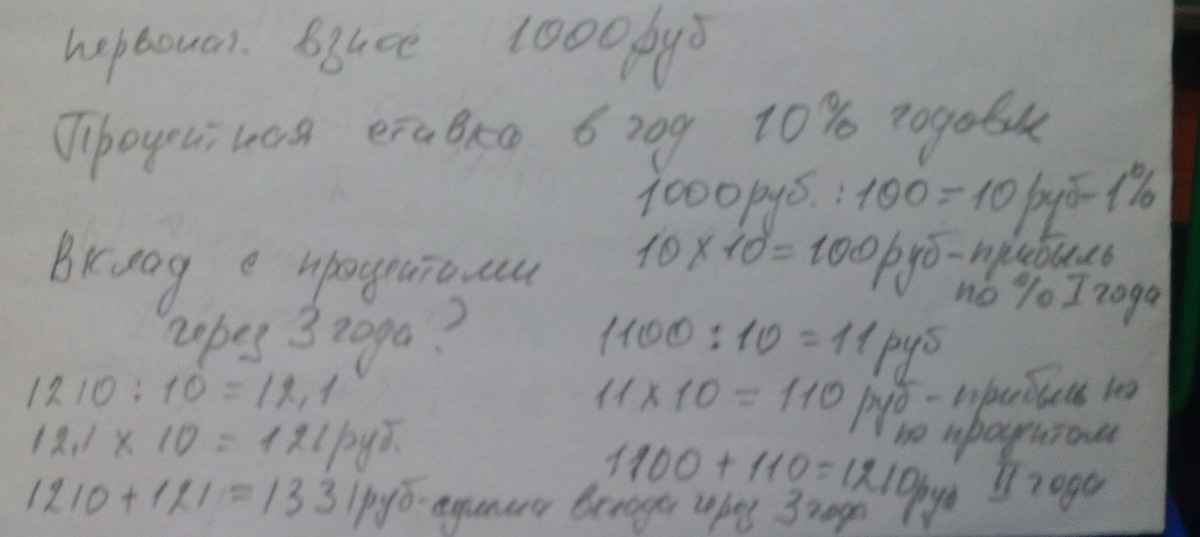 первонач. взнос 1000 руб
Процентная ставка в год 10% годовых
1000 руб. : 100 = 10 руб - 1%
10 х 10 = 100 руб - прибыль
по % I года
Вклад с процентами
через 3 года?
1100 : 10 = 11 руб
11 х 10 = 110 руб - прибыль
по процентам
1100 + 110 = 1210 руб II года
1210 : 10 = 12,1
12,1 х 10 = 121 руб.
1210 + 121 = 1331 руб - сумма вклада через 3 года